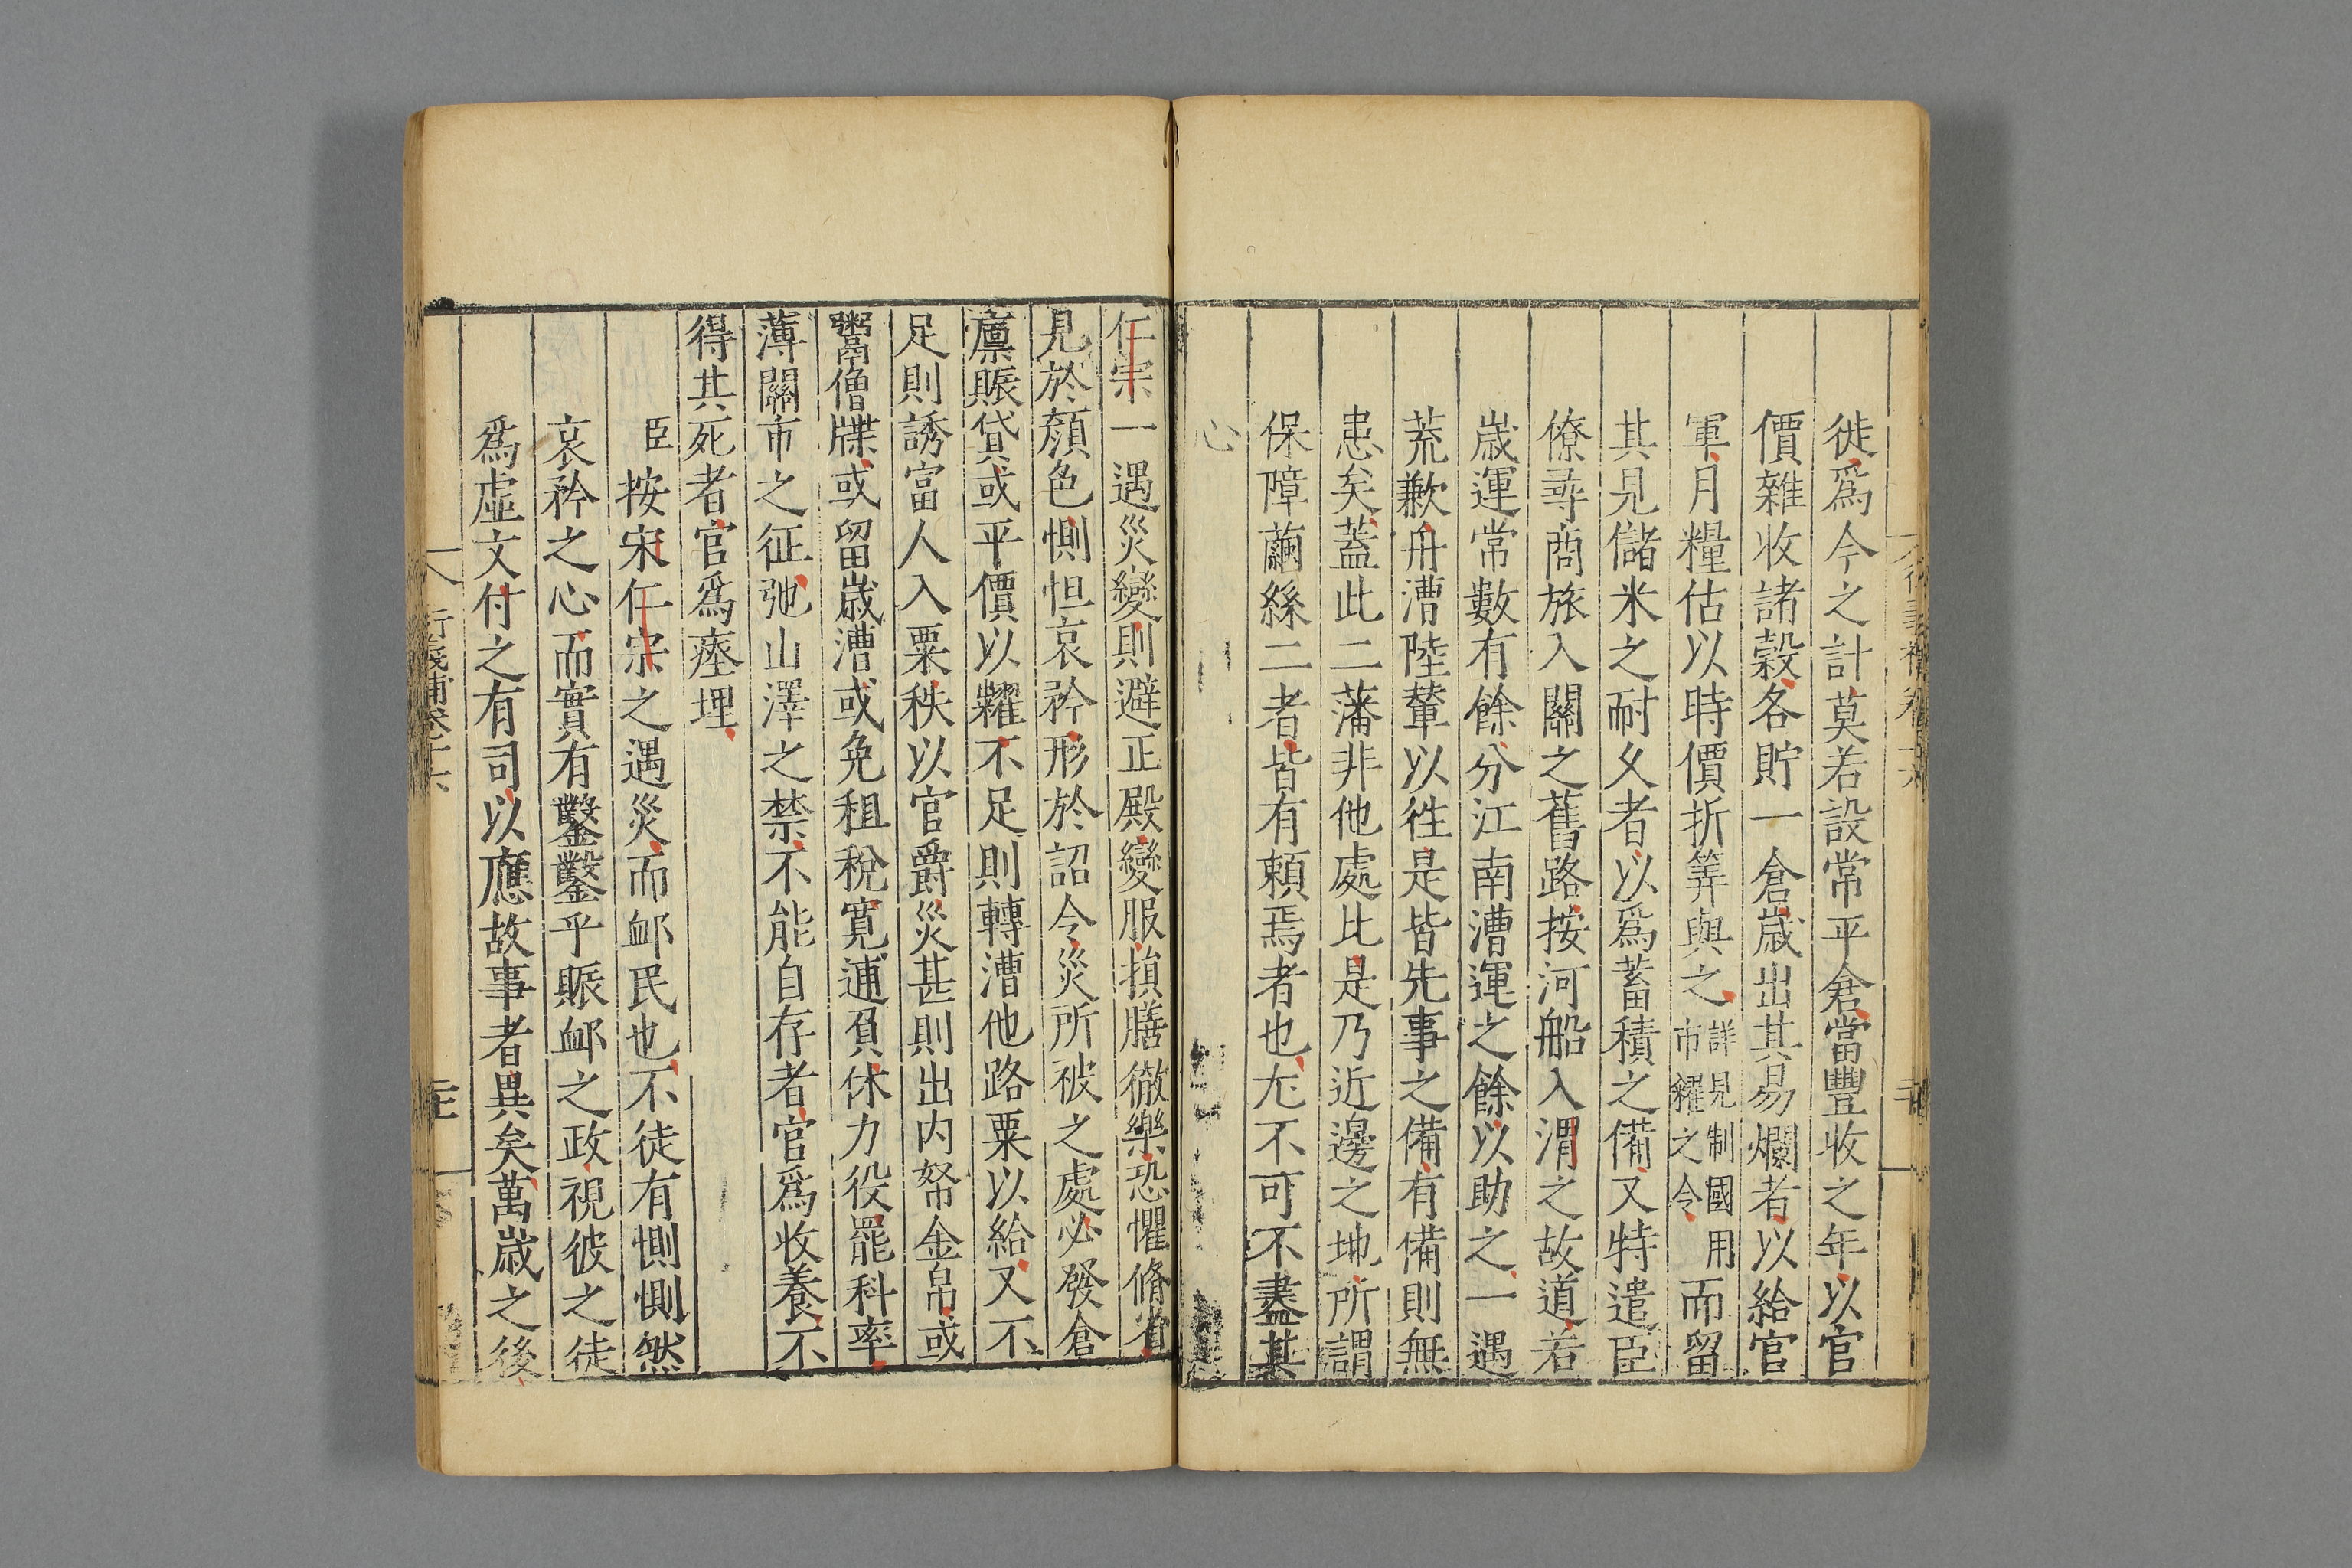 徙爲今之計莫若設常平倉當豐收之年以官
價雜收諸穀各貯一倉歲出其易爛者以給官
軍月糧估以時價折筭與之詳見制國用市糴之令而留
其見儲米之耐乆者以爲蓄積之備又特遣臣
僚尋商旅入關之舊路按河船入渭之故道若
歲運常數有餘分江南漕運之餘以助之一遇
荒歉舟漕陸輦以徃是皆先事之備有備則無
患矣蓋此二藩非他處比是乃近邊之地所謂
保障繭絲二者皆有賴焉者也尤不可不盡其
心
仁宗一遇災變則避正殿變服損膳徹樂恐懼脩省
見於顏色惻怛哀矜形於詔令災所被之處必發倉
廪賑貸或平價以糶不足則轉漕他路粟以給又不
足則誘富人入粟秩以官爵災甚則出内帑金帛或
鬻僧牒或留歲漕或免租稅寛逋負休力役罷科率
薄關市之征弛山澤之禁不能自存者官爲收養不
得其死者官爲瘞埋
臣按宋仁宗之遇災而䘏民也不徒有惻惻然
哀矜之心而實有鑿鑿乎賑䘏之政視彼之徒
爲虛文付之有司以應故事者異矣萬歲之後
行義補卷十六